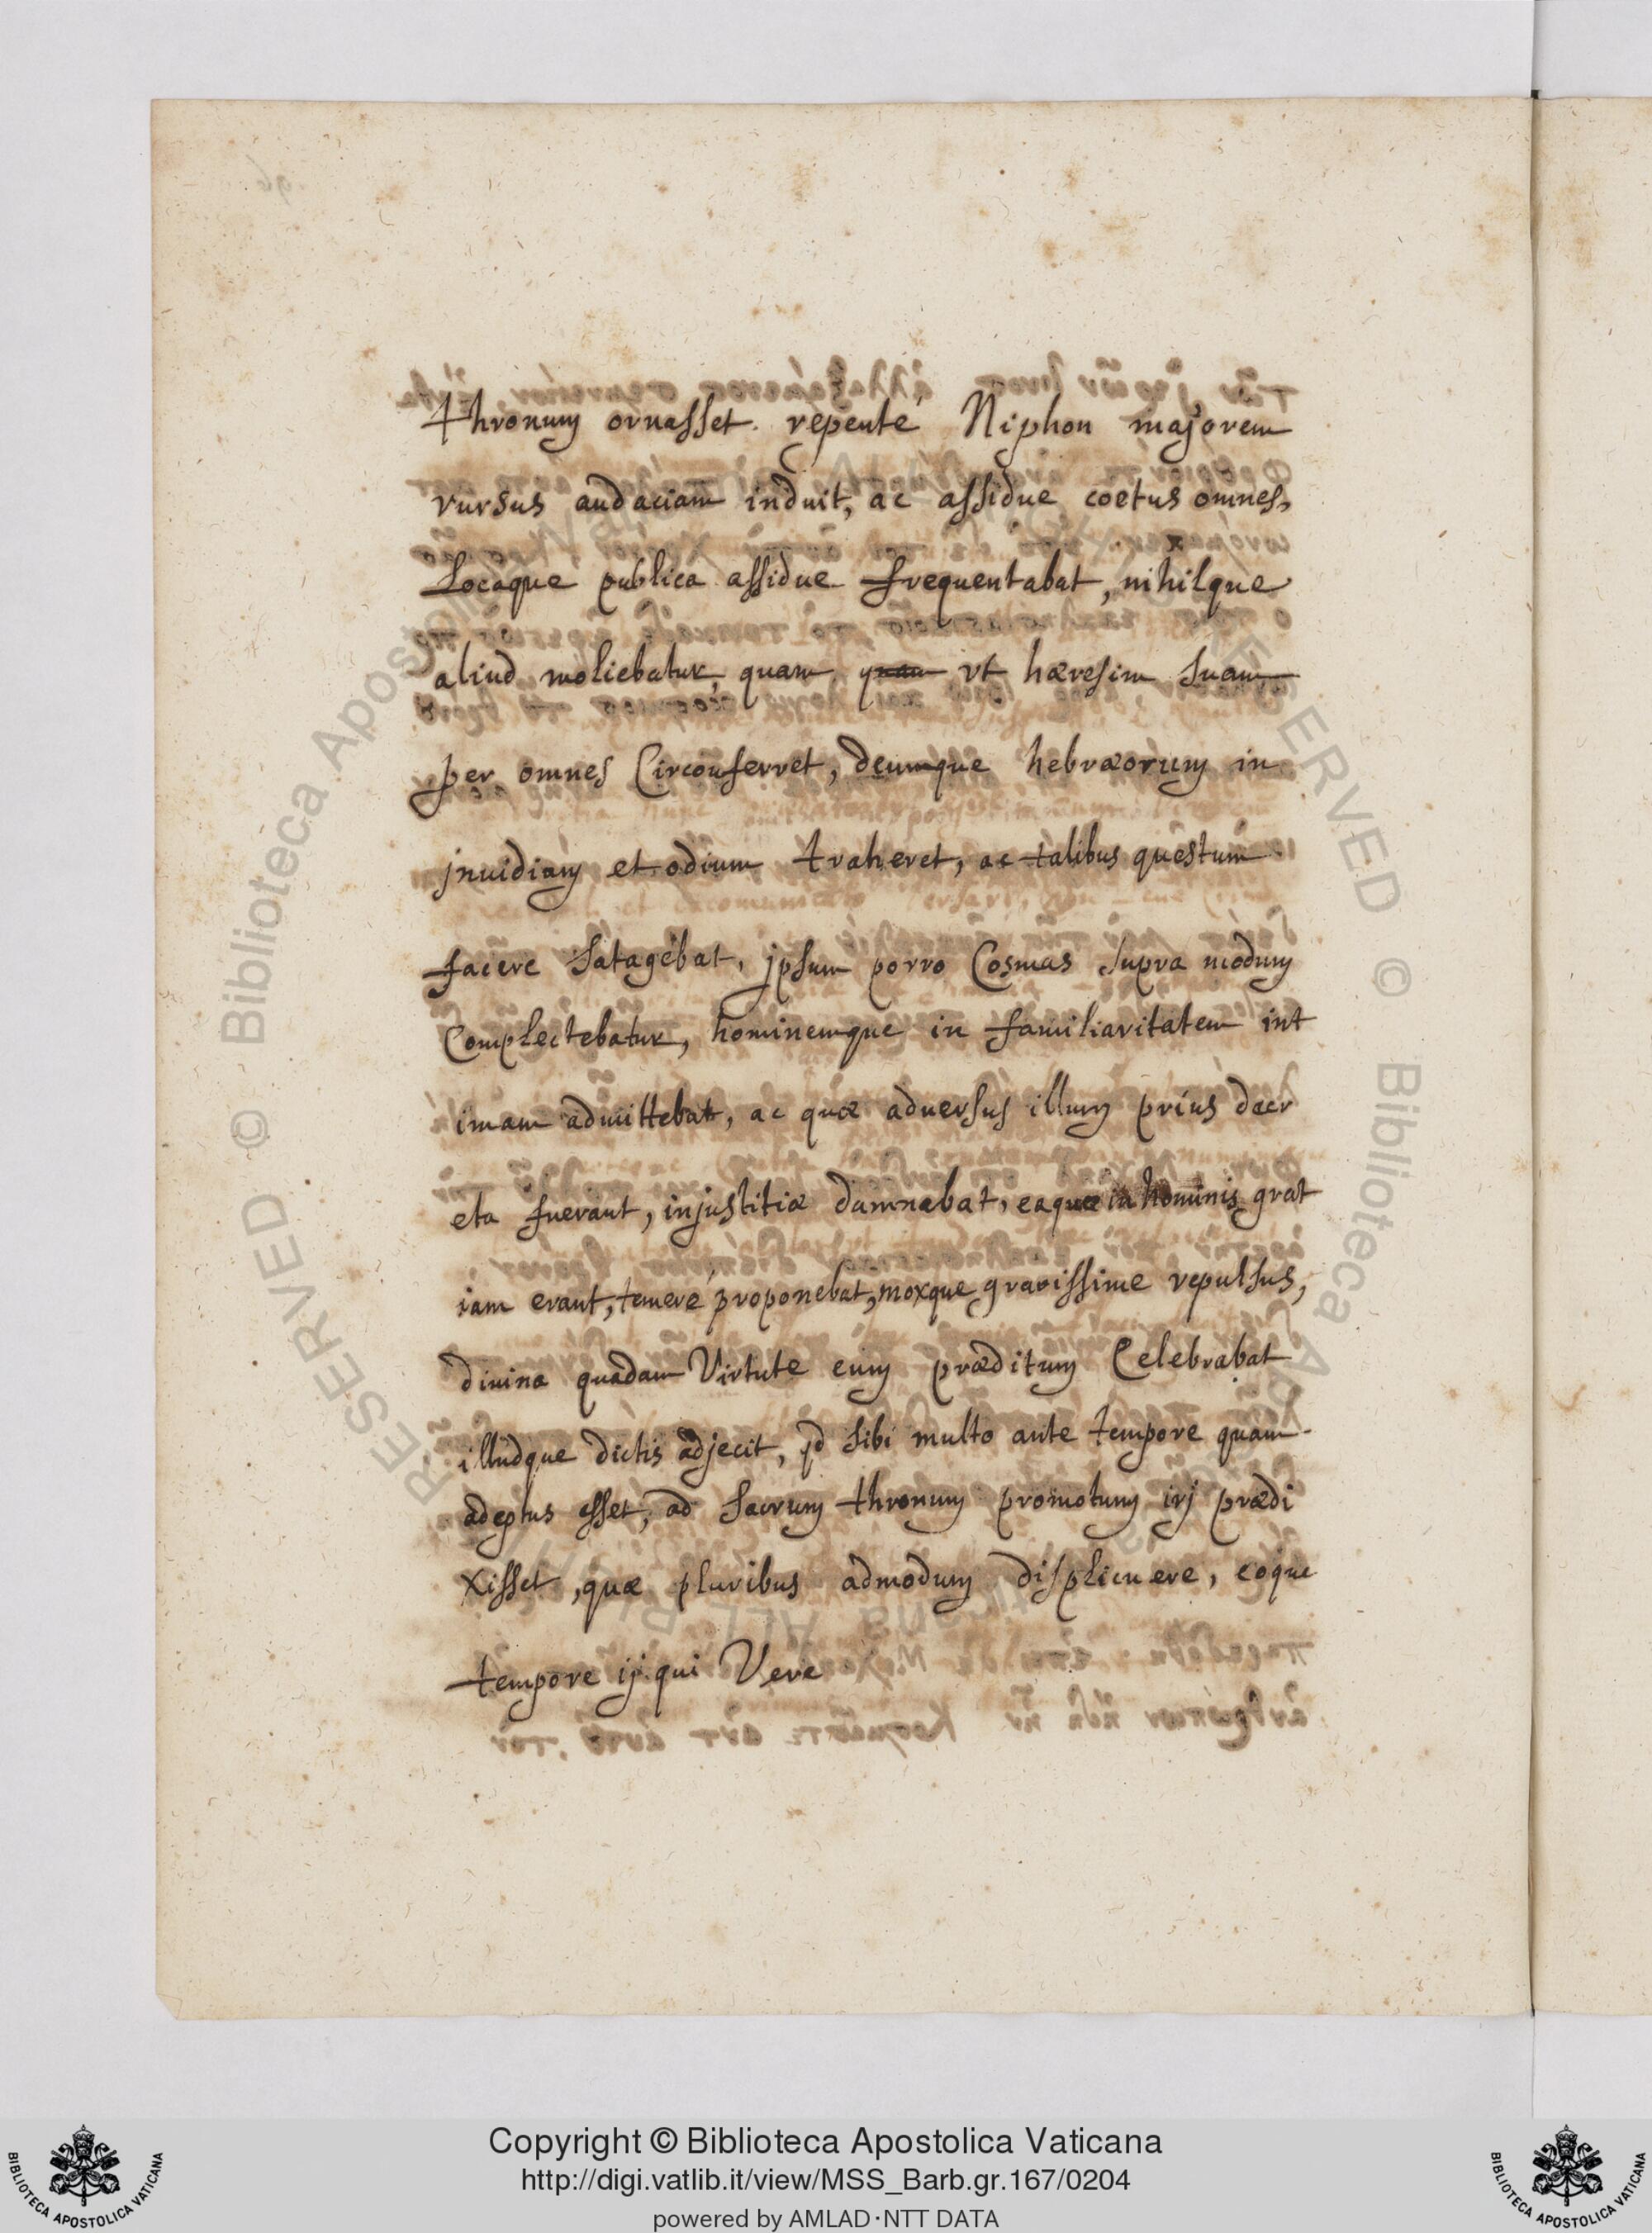 thronum ornasset. repente Niphon majorem
rursus audaciam induit, ac assidue coetus omnes,
Locaque publica assidue frequentabat, nihilque
aliud moliebatur, quam quam vt hæresim suam
per omnes Circonferret, deumque hebræorum in
jnuidiam et odium traheret, ac talibus questum
facere satagebat, jpsum porro Cosmas supra modum
Complectebatur, hominemque in familiaritatem int
imam admittebat, ac quæ aduersus illum prius decr
eta fuerant, injustitiæ damnabat, eaque in hominis grat
iam erant, temere proponebat, moxque grauissime repulsus,
diuina quadam Virtute eum præditum Celebrabat
illudque dictis adjecit, qd sibi multo ante tempore quam
adeptus esset, ad sacrum thronum promotum irj prædi
xisset, quæ pluribus admodum displicuere, eoque
tempore ij qui Vere
Copyright © Biblioteca Apostolica Vaticana
http://digi.vatlib.it/view/MSS_Barb.gr.167/0204
powered by AMLAD·NTT DATA
BIBLIOTECA APOSTOLICA VATICANA
BIBLIOTECA APOSTOLICA VATICANA